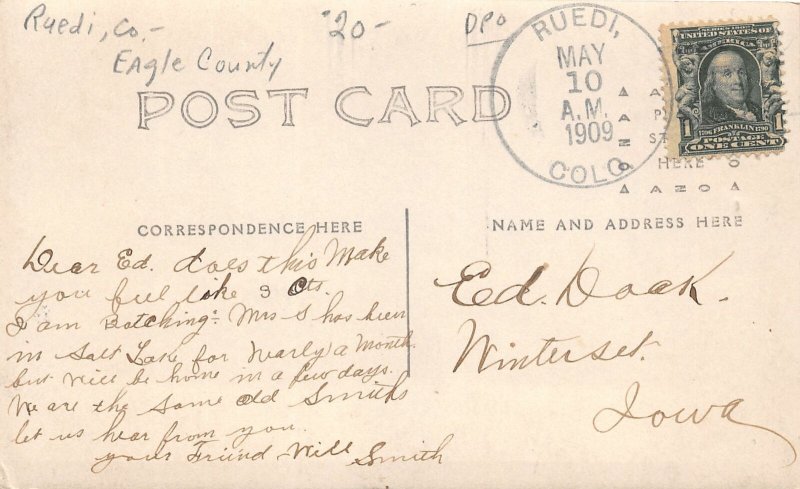 Ruedi, Co.-
Eagle County
20-
DPO
POST CARD
RUEDI,
MAY
10
A.M.
1909
COLO.
SERIES 1902
UNITED STATES OF
AMERICA
1 1
1706 FRANKLIN 1790
POSTAGE
ONE CENT
HERE
AZO
AZO
CORRESPONDENCE HERE
NAME AND ADDRESS HERE
Dear Ed. does this Make
you feel like 3 Cts.
I am Batching. Mrs S has been
in Salt Lake for Nearly a Month.
but Will be home in a few days.
We are the Same Old Smiths
let us hear from you.
your Friend Will Smith
Ed. Doak.
Winterset.
Iowa